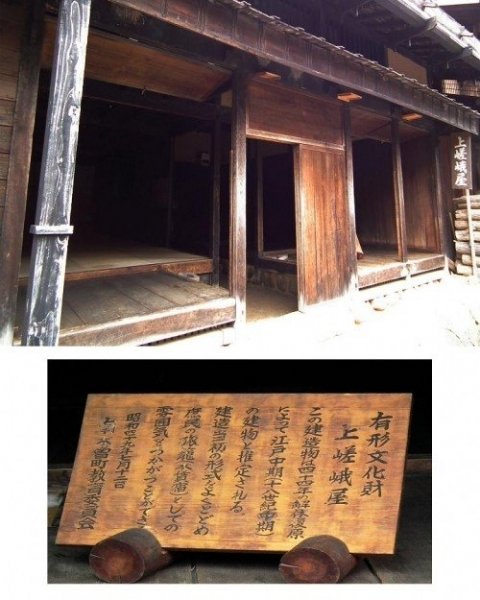 上嵯峨屋
有形文化財
上嵯峨屋
この建造物は四十四年の解体復原
によって江戸中期(十八世紀中期)
の建物と推定される
建造当初の形式をよくとどめ
庶民の旅籠(木賃宿)としての
雰囲気をつかがうことができる
昭和 月十二日
町教育委員会